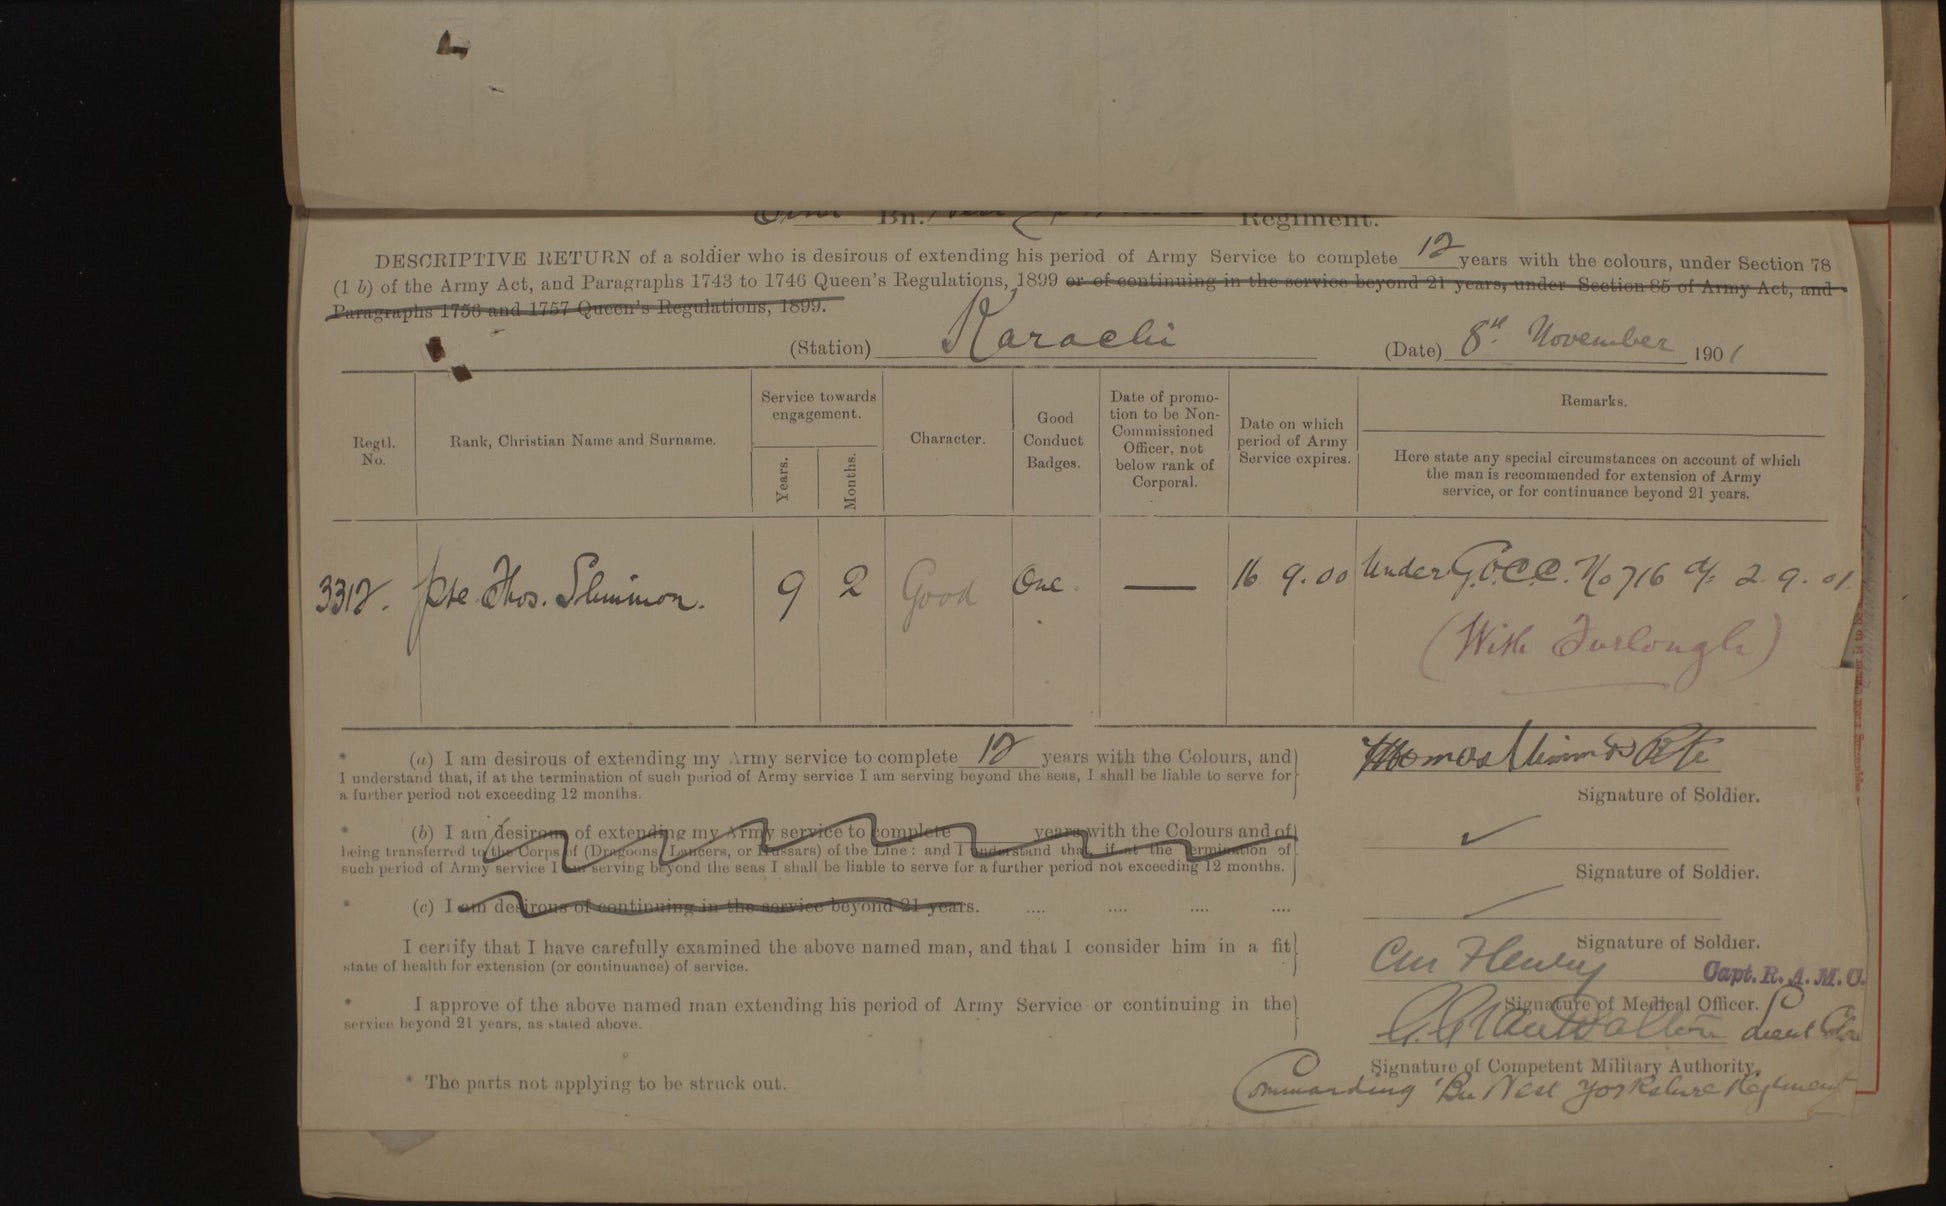 Bn. Regiment.
DESCRIPTIVE RETURN of a soldier who is desirous of extending his period of Army Service to complete 12 years with the colours, under Section 78
(1 b) of the Army Act, and Paragraphs 1743 to 1746 Queen's Regulations, 1899 or of continuing in the service beyond 21 years, under Section 85 of Army Act, and
Paragraphs 1756 and 1757 Queen's Regulations, 1899.
(Station) Karachi (Date) 8th November 1901
Regtl. No.
Rank, Christian Name and Surname.
Service towards engagement.
Years.
Months.
Character.
Good Conduct Badges.
Date of promotion to be Non-Commissioned Officer, not below rank of Corporal.
Date on which period of Army Service expires.
Remarks.
Here state any special circumstances on account of which
the man is recommended for extension of Army
service, or for continuance beyond 21 years.
3312. Pte. Thos. Slimmon. 9 2 Good One. — 16 9.00 Under G.O.C.C. No 716 d/. 2.9.01.
(With Furlough)
* (a) I am desirous of extending my Army service to complete 12 years with the Colours, and
I understand that, if at the termination of such period of Army service I am serving beyond the seas, I shall be liable to serve for
a further period not exceeding 12 months.
Thomas Slimmon Pte
Signature of Soldier.
* (b) I am desirous of extending my Army service to complete years with the Colours and of
being transferred to the Corps of (Dragoons, Lancers, or Hussars) of the Line: and I understand that, if at the termination of
such period of Army service I am serving beyond the seas I shall be liable to serve for a further period not exceeding 12 months.
Signature of Soldier.
* (c) I am desirous of continuing in the service beyond 21 years. .... .... .... ....
Signature of Soldier.
I certify that I have carefully examined the above named man, and that I consider him in a fit
state of health for extension (or continuance) of service.
Henry Capt. R.A.M.C.
Signature of Medical Officer.
* I approve of the above named man extending his period of Army Service or continuing in the
service beyond 21 years, as stated above.
Lieut
Signature of Competent Military Authority.
Commanding Bn West Yorkshire Regiment
* The parts not applying to be struck out.